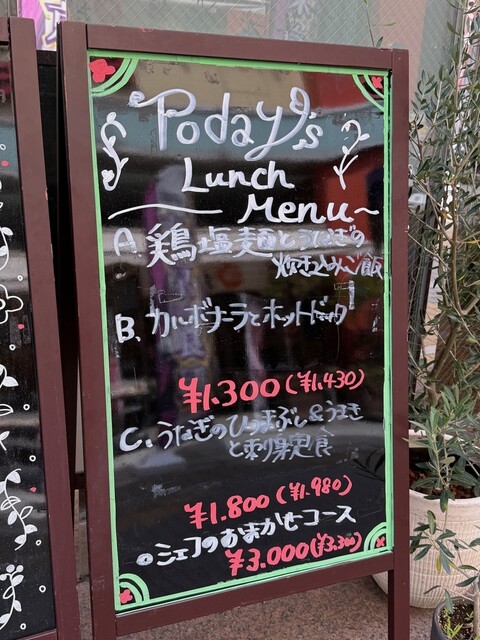 Poday's
Lunch
Menu
A. 鶏塩麺とうなぎの
炊き込みご飯
B. カルボナーラとホットドック
¥1.300(¥1.430)
C. うなぎのひつまぶし&うまき
と刺身定食
¥1.800(¥1.980)
シェフのおまかせコース
¥3.000(¥3.300)